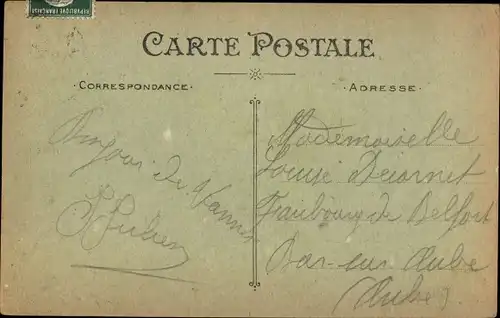 REPUBLIQUE FRANÇAISE
CARTE POSTALE
CORRESPONDANCE
ADRESSE
Bonjour de Vannes
Mademoiselle
Louise
Faubourg de Belfort
Bar-sur Aube
(Aube)